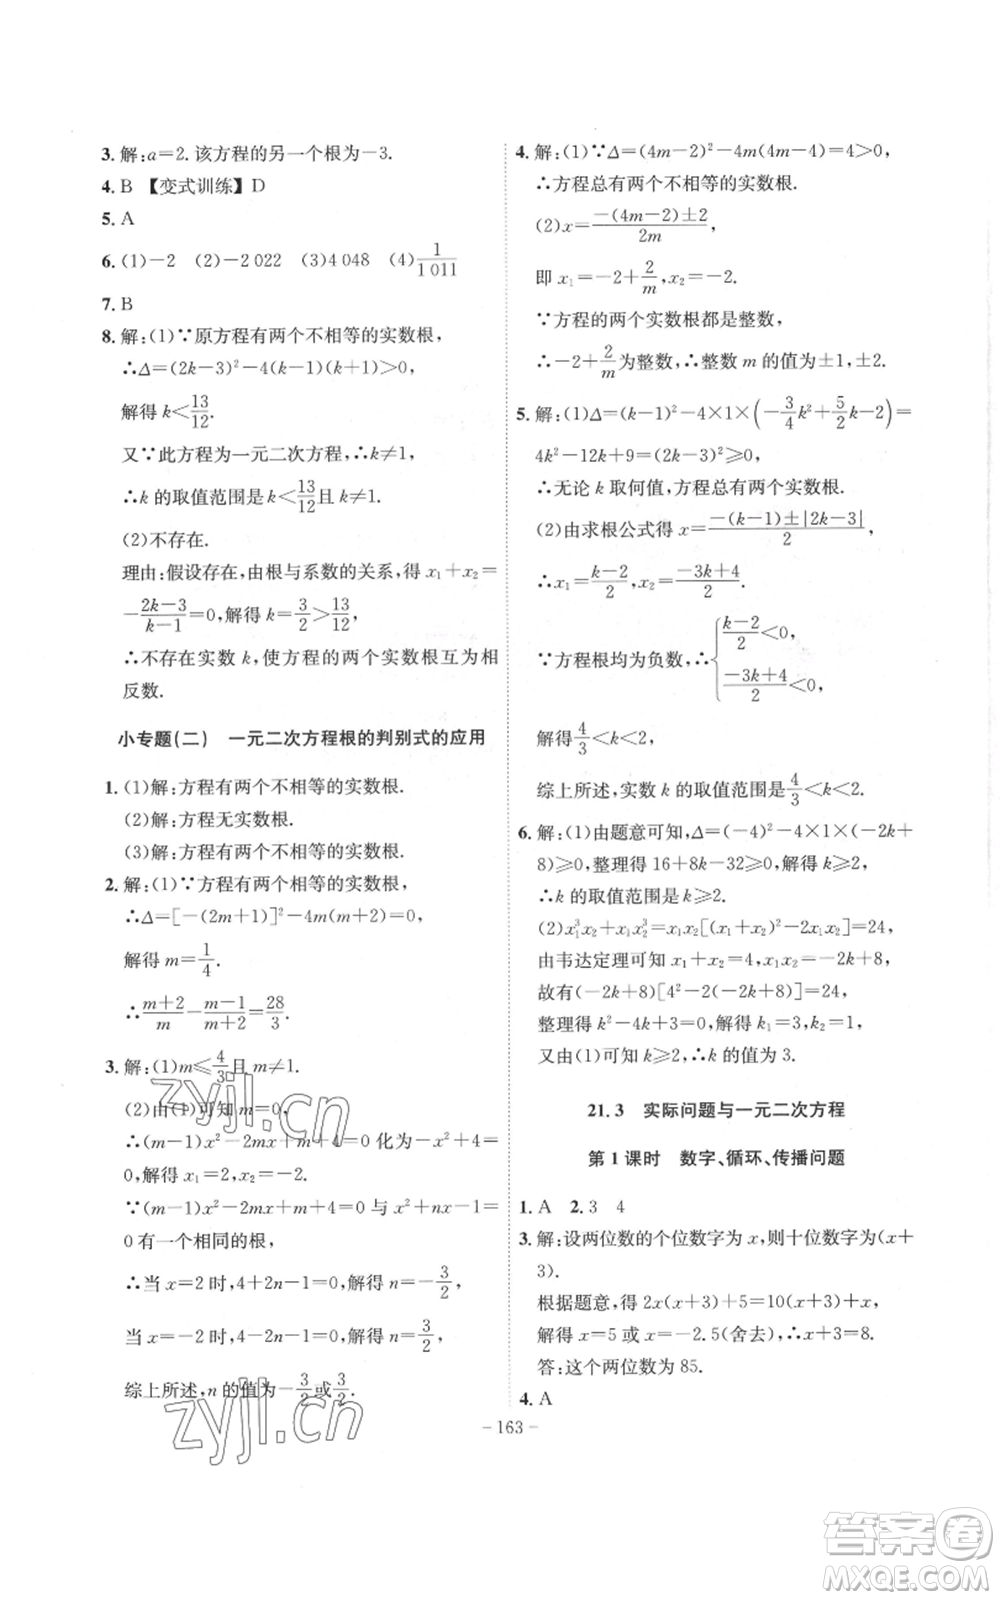 3. 解:a=2. 该方程的另一个根为-3.
4. B 【变式训练】D
5. A
6. (1)-2 (2)-2 022 (3)4 048 (4)1/1 011
7. B
8. 解:(1)∵原方程有两个不相等的实数根,
∴Δ=(2k-3)²-4(k-1)(k+1)>0,
解得 k<13/12.
又∵此方程为一元二次方程,∴k≠1,
∴k 的取值范围是 k<13/12且 k≠1.
(2)不存在.
理由:假设存在,由根与系数的关系,得 x₁+x₂=
-(2k-3)/(k-1)=0,解得 k=3/2>13/12,
∴不存在实数 k,使方程的两个实数根互为相
反数.
小专题(二) 一元二次方程根的判别式的应用
1. (1)解:方程有两个不相等的实数根.
(2)解:方程无实数根.
(3)解:方程有两个不相等的实数根.
2. 解:(1)∵方程有两个相等的实数根,
∴Δ=[-(2m+1)]²-4m(m+2)=0,
解得 m=1/4.
∴(m+2)/m-(m-1)/(m+2)=28/3.
3. 解:(1)m≤4/3且 m≠1.
(2)由(1)可知 m=0,
∴(m-1)x²-2mx+m+4=0 化为-x²+4=0,
解得 x₁=2,x₂=-2.
∵(m-1)x²-2mx+m+4=0 与 x²+nx-1=
0 有一个相同的根,
∴当 x=2 时,4+2n-1=0,解得 n=-3/2,
当 x=-2 时,4-2n-1=0,解得 n=3/2,
综上所述,n 的值为-3/2或3/2.
4. 解:(1)∵Δ=(4m-2)²-4m(4m-4)=4>0,
∴方程总有两个不相等的实数根.
(2)x=(-(4m-2)±2)/2m,
即 x₁=-2+2/m,x₂=-2.
∵方程的两个实数根都是整数,
∴-2+2/m为整数,∴整数 m 的值为±1,±2.
5. 解:(1)Δ=(k-1)²-4×1×(-3/4k²+5/2k-2)=
4k²-12k+9=(2k-3)²≥0,
∴无论 k 取何值,方程总有两个实数根.
(2)由求根公式得 x=(-(k-1)±|2k-3|)/2,
∴x₁=(k-2)/2,x₂=(-3k+4)/2.
∵方程根均为负数,∴{(k-2)/2<0,
(-3k+4)/2<0,
解得4/3<k<2.
综上所述,实数 k 的取值范围是4/3<k<2.
6. 解:(1)由题意可知,Δ=(-4)²-4×1×(-2k+
8)≥0,整理得 16+8k-32≥0,解得 k≥2,
∴k 的取值范围是 k≥2.
(2)x₁³x₂+x₁x₂³=x₁x₂[(x₁+x₂)²-2x₁x₂]=24,
由韦达定理可知 x₁+x₂=4,x₁x₂=-2k+8,
故有(-2k+8)[4²-2(-2k+8)]=24,
整理得 k²-4k+3=0,解得 k₁=3,k₂=1,
又由(1)可知 k≥2,∴k 的值为 3.
21.3 实际问题与一元二次方程
第 1 课时 数字、循环、传播问题
1. A 2. 3 4
3. 解:设两位数的个位数字为 x,则十位数字为(x+
3).
根据题意,得 2x(x+3)+5=10(x+3)+x,
解得 x=5 或 x=-2.5(舍去),∴x+3=8.
答:这个两位数为 85.
4. A
- 163 -
zyjl.cn
zyjl.cn
答案圈
MXQE.COM